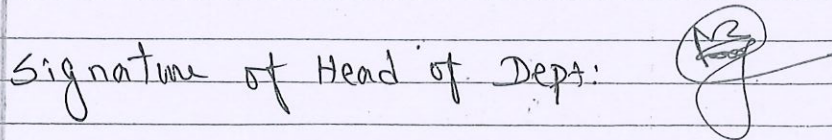 Signature of Head of Dept: